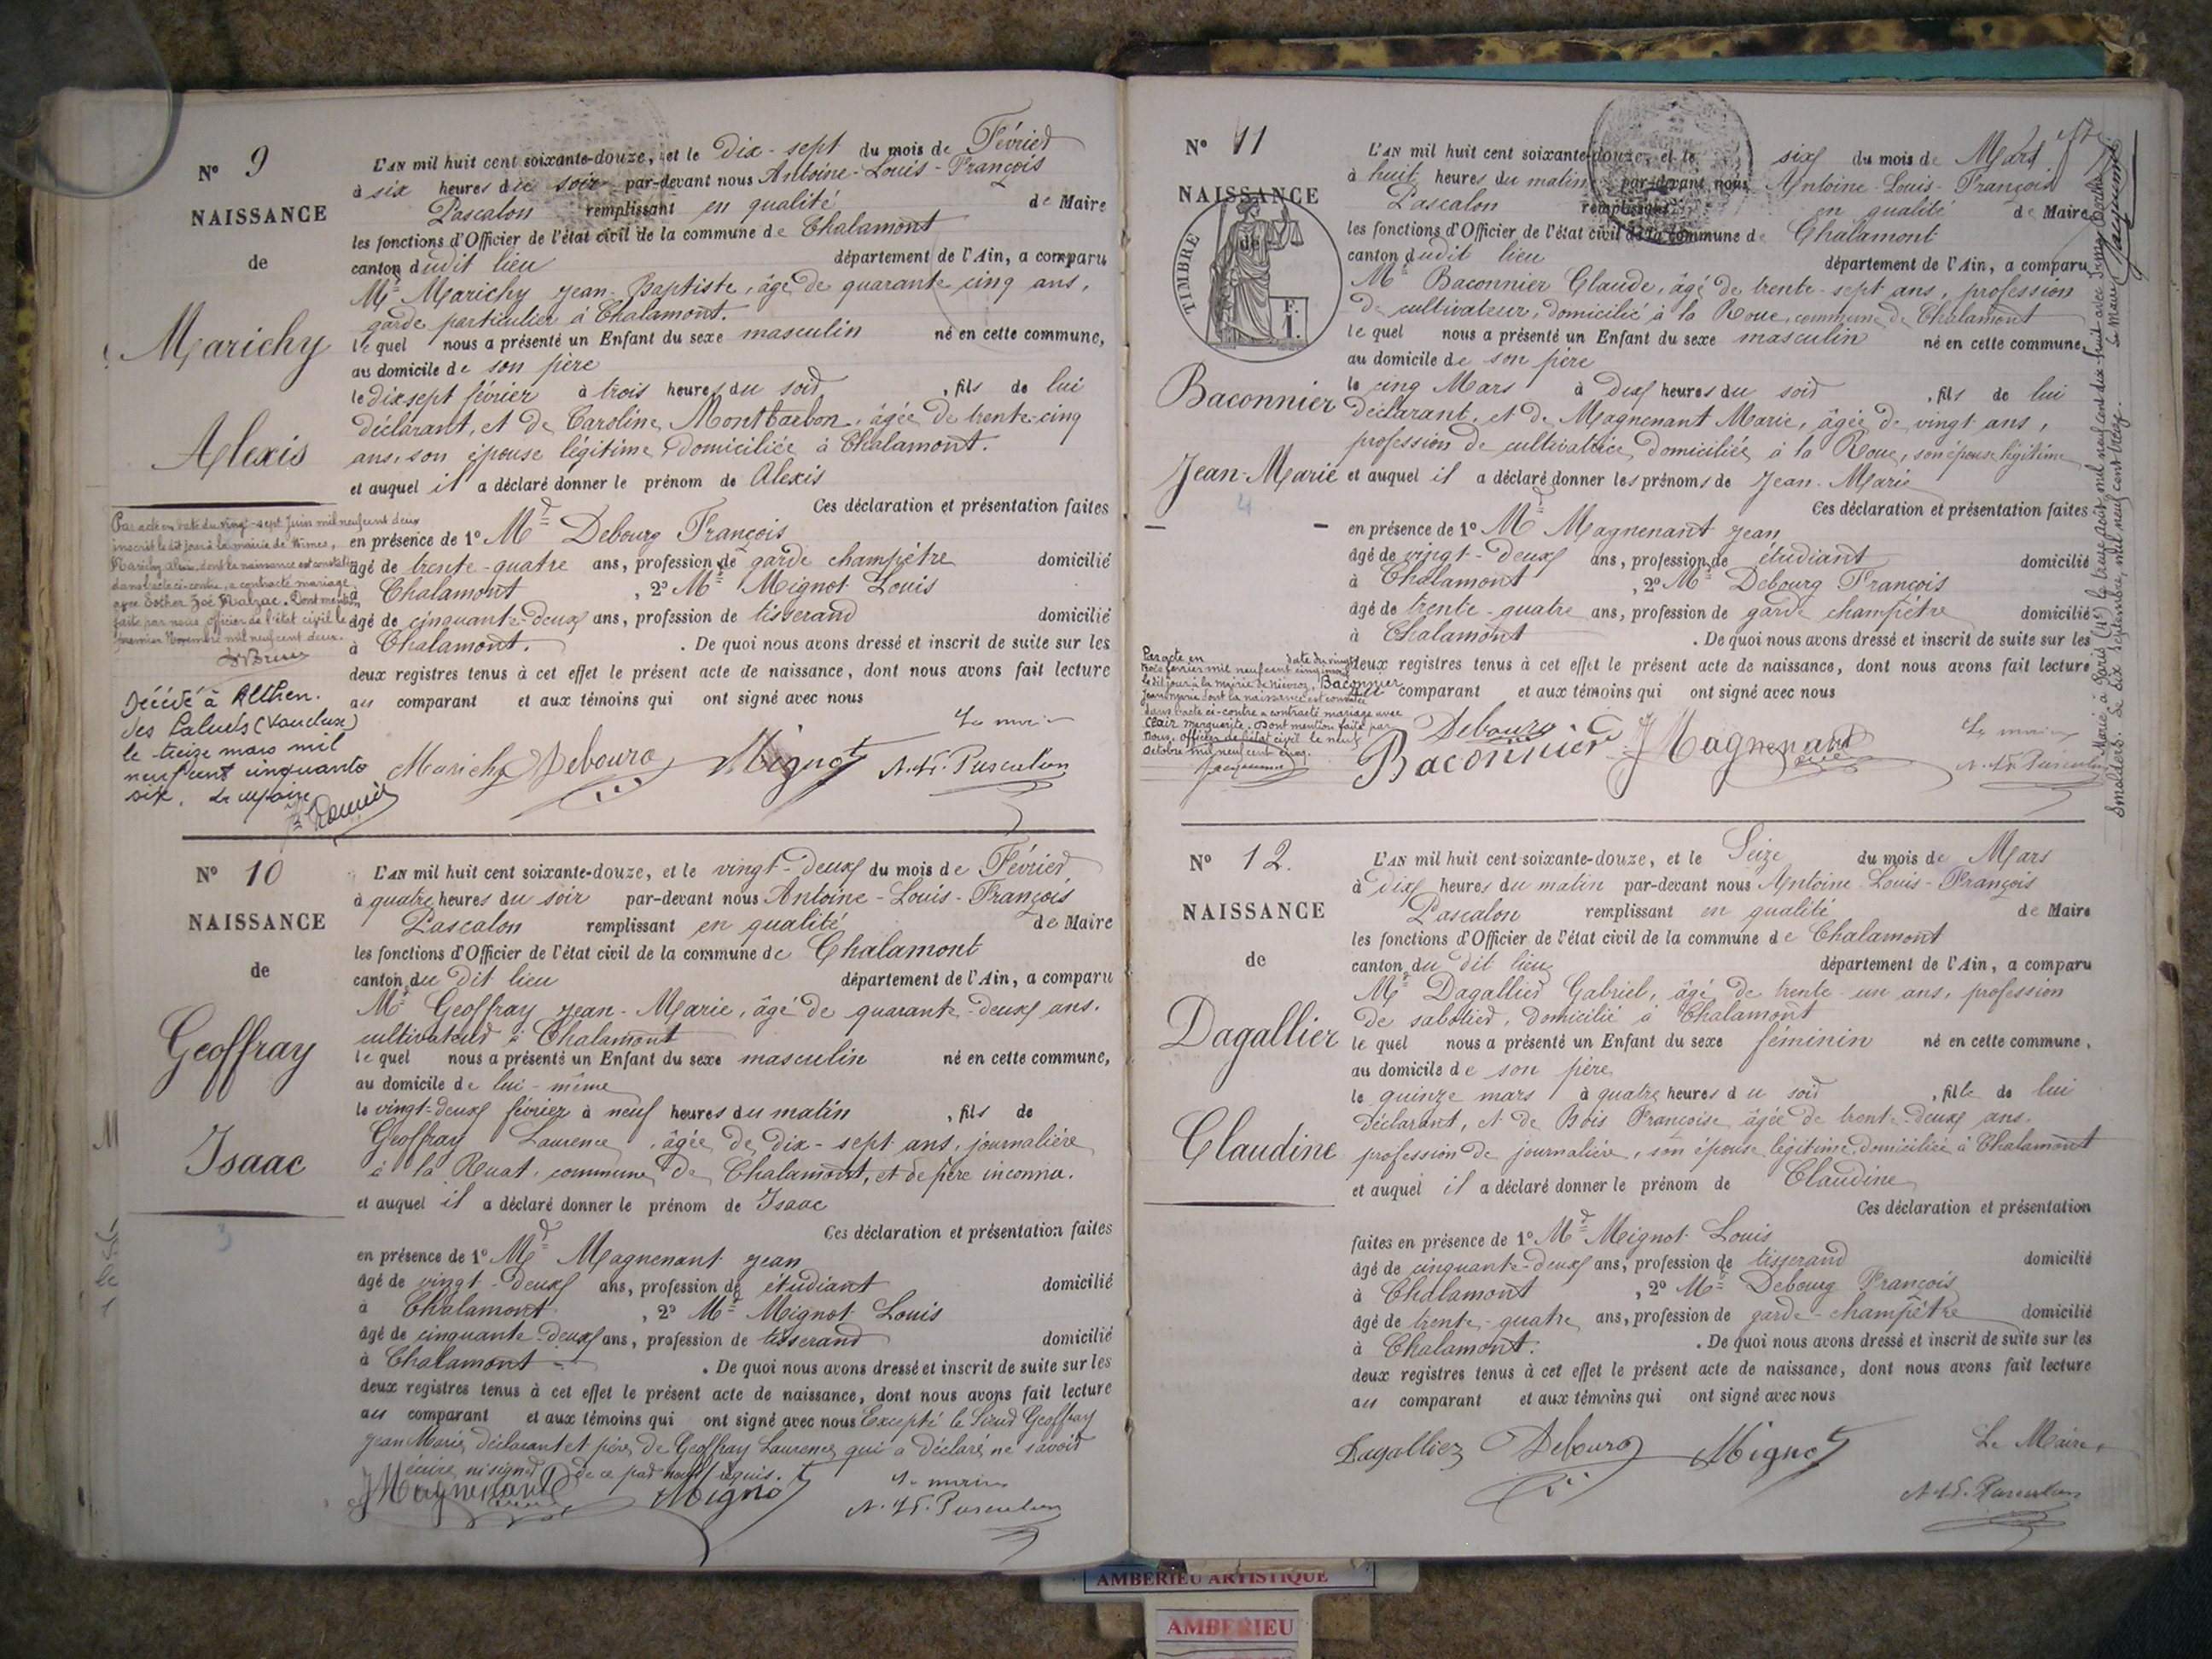 N° 9
NAISSANCE
de
Marichy
Alexis
L'AN mil huit cent soixante-douze, et le Dix-sept du mois de Février
à six heures du soir par-devant nous Antoine-Louis-François
Pascalon remplissant en qualité de Maire
les fonctions d'Officier de l'état civil de la commune de Chalamont
canton dudit lieu département de l'Ain, a comparu
Mr Marichy Jean-Baptiste, âgé de quarante cinq ans,
garde particulier à Chalamont.
lequel nous a présenté un Enfant du sexe masculin né en cette commune,
au domicile de son père
le dix sept février à trois heures du soir, fils de lui
déclarant, et de Caroline Montbarbon, âgée de trente-cinq
ans, son épouse légitime domiciliée à Chalamont.
et auquel il a déclaré donner le prénom de Alexis
Ces déclaration et présentation faites
en présence de 1° Mr Debourg François
âgé de trente-quatre ans, profession de garde champêtre domicilié
à Chalamont, 2° Mr Mignot Louis
âgé de cinquante-deux ans, profession de tisserand domicilié
à Chalamont. De quoi nous avons dressé et inscrit de suite sur les
deux registres tenus à cet effet le présent acte de naissance, dont nous avons fait lecture
au comparant et aux témoins qui ont signé avec nous
Le maire
Marichy Debourg Mignot A. L. F. Pascalon
Par acte en date du vingt-sept Juin mil neuf cent deux
inscrit le dit jour à la mairie de Nimes,
Marichy Alexis, dont la naissance est constatée
dans l'acte ci-contre, a contracté mariage
avec Esther Zoé Malzac. Dont mention
faite par nous officier de l'état civil le
premier Novembre mil neuf cent deux.
Décédé à Althen
des Paluds (Vaucluse)
le treize mars mil
neuf cent cinquante
six. Le Maire
N° 10
NAISSANCE
de
Geoffray
Isaac
3
L'AN mil huit cent soixante-douze, et le vingt-deux du mois de Février
à quatre heures du soir par-devant nous Antoine-Louis-François
Pascalon remplissant en qualité de Maire
les fonctions d'Officier de l'état civil de la commune de Chalamont
canton du dit lieu département de l'Ain, a comparu
Mr Geoffray Jean-Marie, âgé de quarante-deux ans.
cultivateur à Chalamont
lequel nous a présenté un Enfant du sexe masculin né en cette commune,
au domicile de lui-même
le vingt-deux février à neuf heures du matin, fils de
Geoffray Laurence, âgée de dix-sept ans, journalière
à la Ruat, commune de Chalamont, et de père inconnu.
et auquel il a déclaré donner le prénom de Isaac
Ces déclaration et présentation faites
en présence de 1° Mr Magnenant Jean
âgé de vingt-deux ans, profession de étudiant domicilié
à Chalamont, 2° Mr Mignot Louis
âgé de cinquante-deux ans, profession de tisserand domicilié
à Chalamont. De quoi nous avons dressé et inscrit de suite sur les
deux registres tenus à cet effet le présent acte de naissance, dont nous avons fait lecture
au comparant et aux témoins qui ont signé avec nous Excepté le Sieur Geoffray
Jean Marie, déclarant et père de Geoffray Laurence, qui a déclaré ne savoir
écrire ni signer de ce par nous requis.
Le maire
Magnenant Mignot A. L. F. Pascalon
N° 11
NAISSANCE
de
TIMBRE
F.
1.
Baconnier
Jean-Marie
4
L'AN mil huit cent soixante-douze, et le six du mois de Mars
à huit heures du matin par-devant nous Antoine-Louis-François
Pascalon remplissant en qualité de Maire
les fonctions d'Officier de l'état civil de la commune de Chalamont
canton dudit lieu département de l'Ain, a comparu
Mr Baconnier Claude, âgé de trente-sept ans, profession
de cultivateur, domicilié à la Roue, commune de Chalamont
lequel nous a présenté un Enfant du sexe masculin né en cette commune,
au domicile de son père
le cinq Mars à Dix heures du soir, fils de lui
déclarant, et de Magnenant Marie, âgée de vingt ans,
profession de cultivatrice, domiciliée à la Roue, son épouse légitime
et auquel il a déclaré donner les prénoms de Jean-Marie
Ces déclaration et présentation faites
en présence de 1° Mr Magnenant Jean
âgé de vingt-deux ans, profession de étudiant domicilié
à Chalamont, 2° Mr Debourg François
âgé de trente-quatre ans, profession de garde champêtre domicilié
à Chalamont. De quoi nous avons dressé et inscrit de suite sur les
deux registres tenus à cet effet le présent acte de naissance, dont nous avons fait lecture
au comparant et aux témoins qui ont signé avec nous
Le maire
Debourg
Baconnier Magnenant A. L. F. Pascalon
Par acte en date du vingt
trois février mil neuf cent cinq inscrit
le dit jour à la mairie de Niévroz, Baconnier
Jean Marie dont la naissance est constatée
dans l'acte ci-contre a contracté mariage avec
Clair Marguerite. Dont mention faite par
Nous, officier de l'état civil le neuf
Octobre mil neuf cent cinq.
Jacquemet
Marié à Paris le trente août mil neuf cent dix-huit avec
Smelders. Le dix septembre, mil neuf cent Le Maire Jacquemet
N° 12.
NAISSANCE
de
Dagallier
Claudine
L'AN mil huit cent soixante-douze, et le Seize du mois de Mars
à dix heures du matin par-devant nous Antoine Louis-François
Pascalon remplissant en qualité de Maire
les fonctions d'Officier de l'état civil de la commune de Chalamont
canton du dit lieu département de l'Ain, a comparu
Mr Dagallier Gabriel, âgé de trente-un ans, profession
de sabotier, domicilié à Chalamont
lequel nous a présenté un Enfant du sexe féminin né en cette commune,
au domicile de son père
le quinze mars à quatre heures du soir, fille de lui
déclarant, et de Bois Françoise âgée de trente-deux ans.
profession de journalière, son épouse légitime domiciliée à Chalamont
et auquel il a déclaré donner le prénom de Claudine
Ces déclaration et présentation
faites en présence de 1° Mr Mignot Louis
âgé de cinquante-deux ans, profession de tisserand domicilié
à Chalamont, 2° Mr Debourg François
âgé de trente-quatre ans, profession de garde-champêtre domicilié
à Chalamont. De quoi nous avons dressé et inscrit de suite sur les
deux registres tenus à cet effet le présent acte de naissance, dont nous avons fait lecture
au comparant et aux témoins qui ont signé avec nous
Dagallier Debourg Mignot Le Maire,
A. L. F. Pascalon
AMBERIEU ARTISTIQUE
AMBERIEU